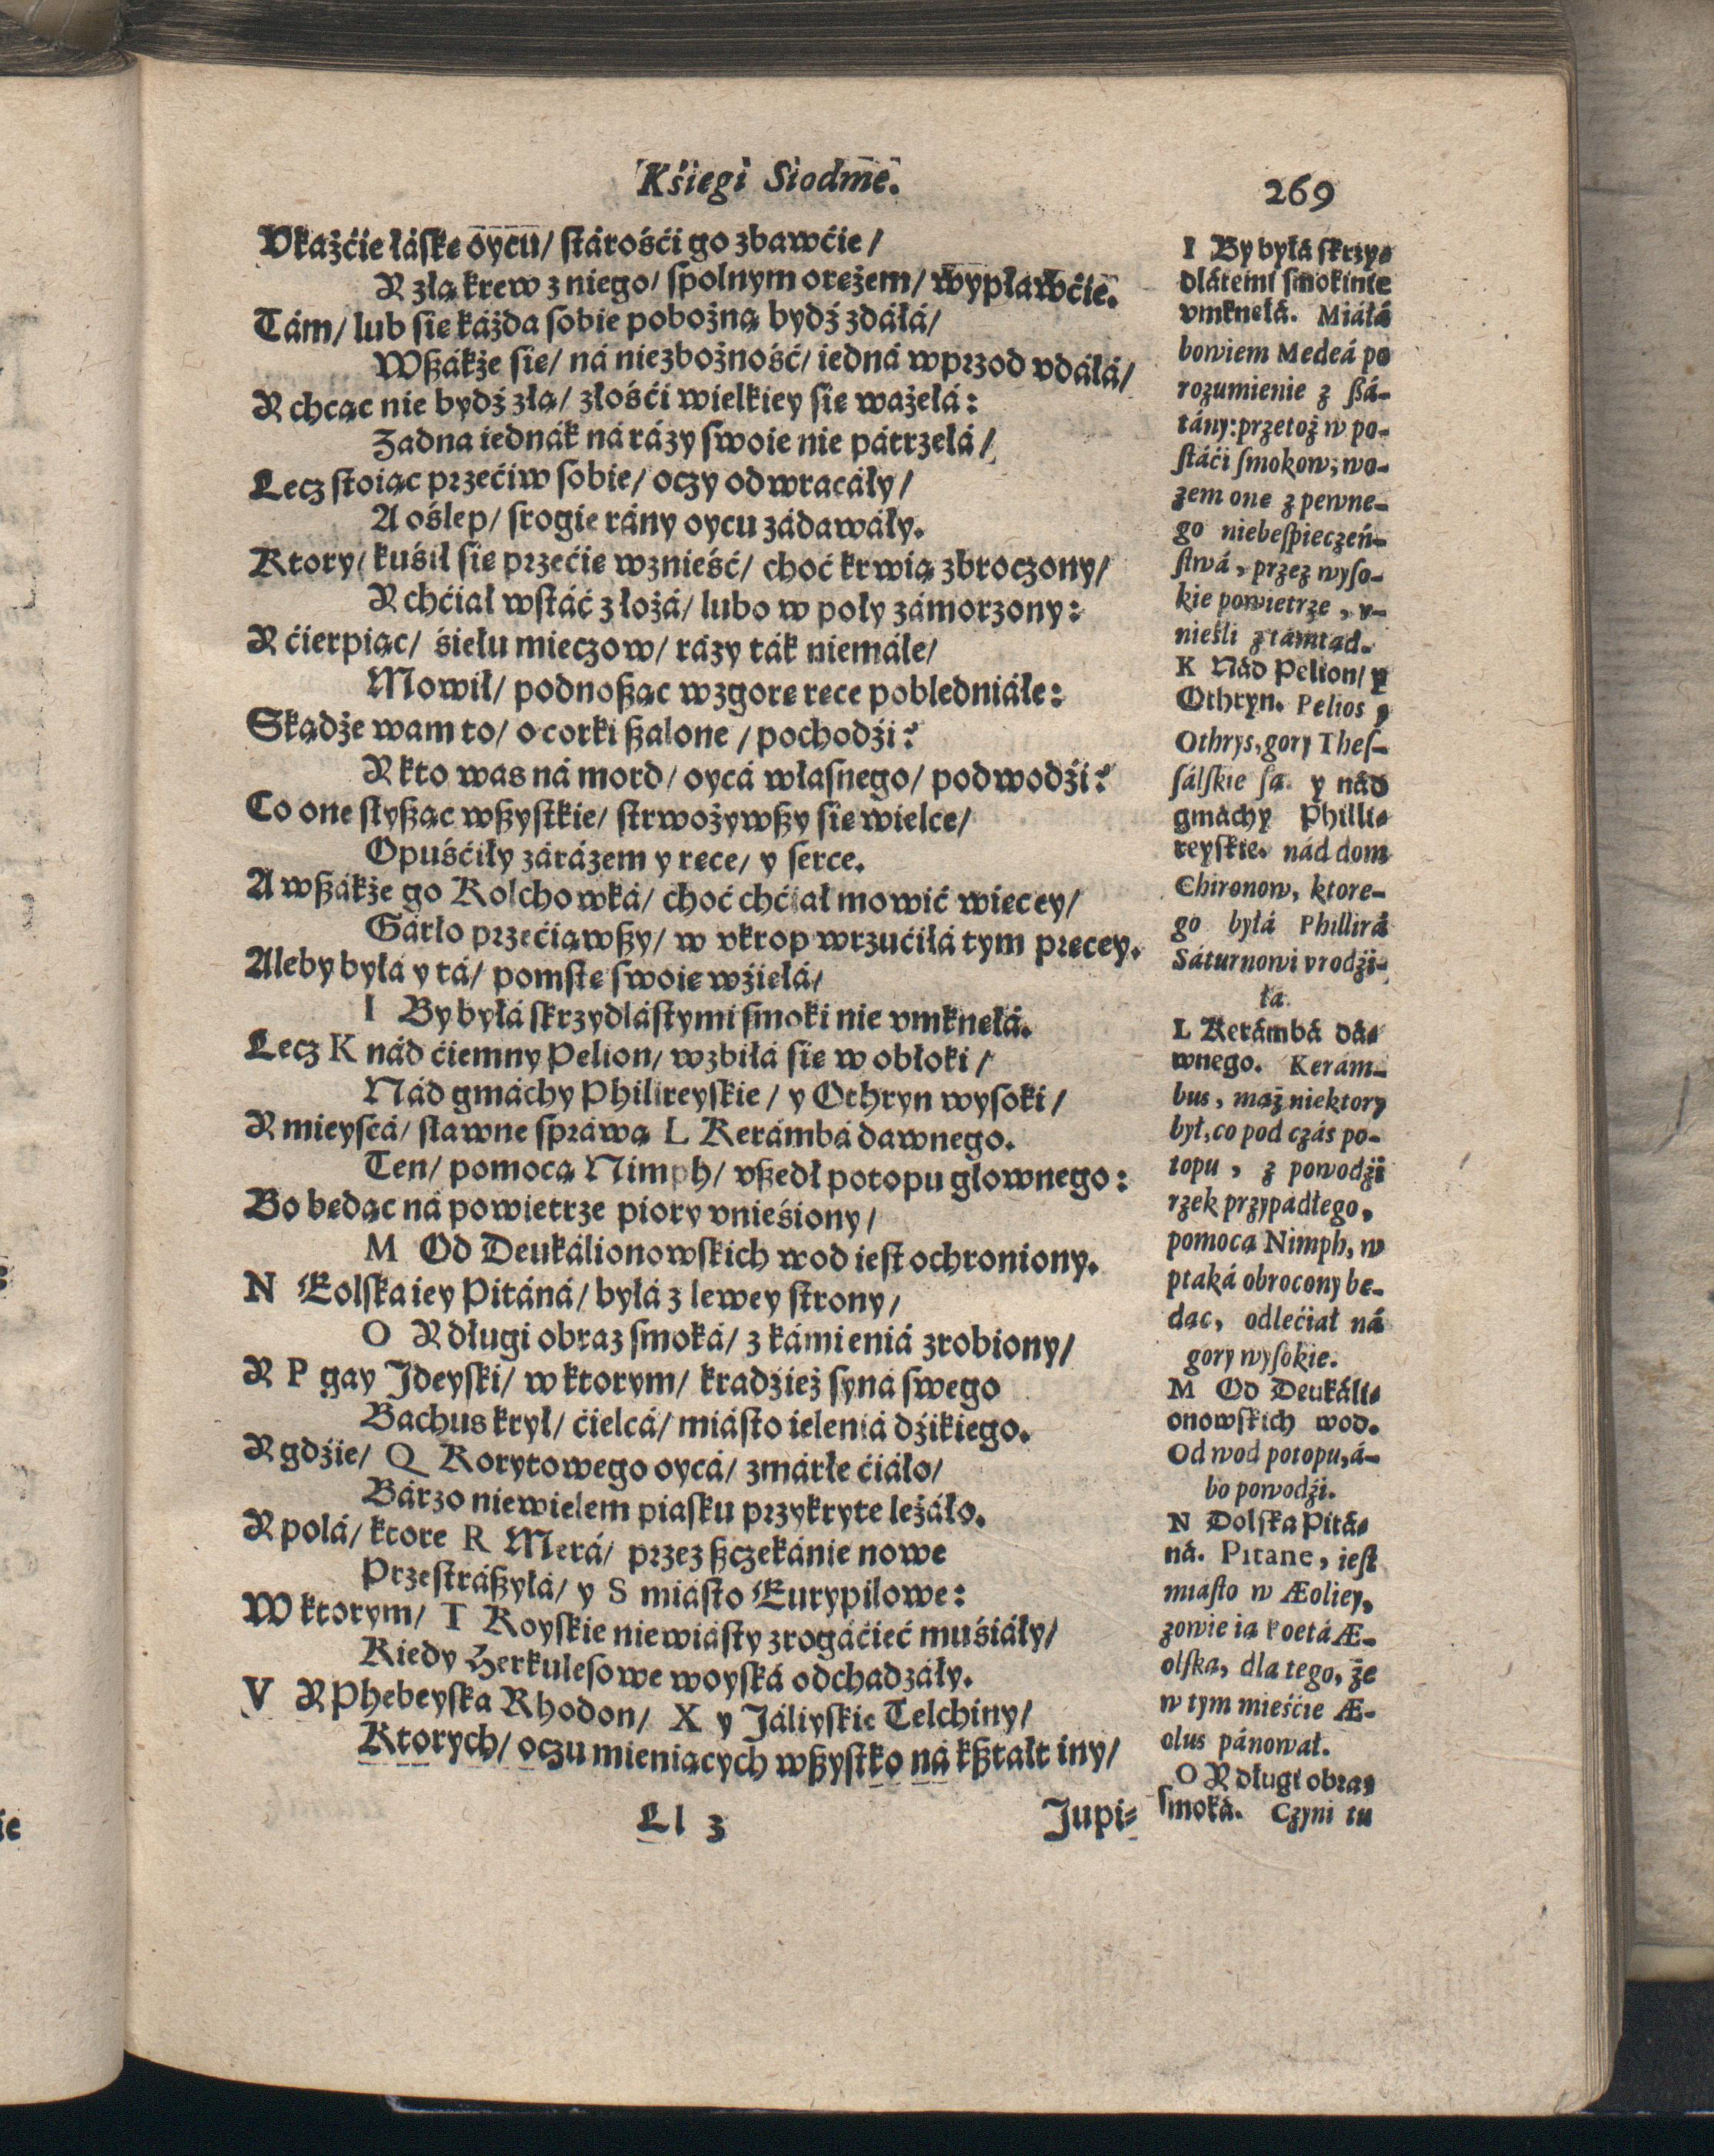 Kśiegi Siodme.
269
Vkażćie łáskę oycu/ stárośći go zbawćie/
R złą krew z niego/ spolnym orężem/ wypławćie.
Tám/ lub się káżda sobie pobożną bydź zdáłá/
Wszákże się/ ná niezbożność/ iedná wprzod vdáłá/
R chcąc nie bydź złą/ złośći wielkiey się ważełá:
Zadna iednák ná rázy swoie nie pátrzełá/
Lecz stoiąc przećiw sobie/ oczy odwracáły/
A oślep/ srogie rány oycu zádawáły.
Ktory/ kuśił się przećie wznieść/ choć krwią zbroczony/
R chćiał wstáć z łożá/ lubo w poły zámorzony:
R ćierpiąc/ śiełu mieczow/ rázy ták niemáłe/
Mowił/ podnosząc wzgorę ręce pobledniáłe:
Skądże wam to/ o corki szalone/ pochodźi?
R kto was ná mord/ oycá własnego/ podwodźi?
Co one słysząc wszystkie/ strwożywszy się wielce/
Opuśćiły zárázem y ręce/ y serce.
A wszákże go Kolchowká/ choć chćiał mowić więcey/
Gárło przećiąwszy/ w vkrop wrzućiłá tym pręcey.
Aleby byłá y tá/ pomstę swoię wźięłá/
I By byłá skrzydlástymi smoki nie vmknęłá.
Lecz K nád ćiemny Pelion/ wzbiłá się w obłoki/
Nád gmáchy Philireyskie/ y Othryn wysoki/
R mieyscá/ sławne spráwą L Kerámbá dawnego.
Ten/ pomocą Nimph/ vszedł potopu głownego:
Bo będąc ná powietrze piory vnieśiony/
M Od Deukálionowskich wod iest ochroniony.
N Eolska iey Pitáná/ byłá z lewey strony/
O R długi obraz smoká/ z kámieniá zrobiony/
R P gay Jdeyski/ w ktorym/ kradźież syná swego
Bachus krył/ ćielcá/ miásto ieleniá dźikiego.
R gdźie/ Q Korytowego oycá/ zmárłe ćiáło/
Bárzo niewielem piasku przykryte leżáło.
R polá/ ktore R Merá/ przez szczekánie nowe
Przestrászyłá/ y S miásto Eurypilowe:
W ktorym/ T Koyskie niewiásty zrogáćieć muśiáły/
Kiedy Herkulesowe woyská odchadzáły.
V R Phebeyska Rhodon/ X y Jáliyskie Telchiny/
Ktorych/ oczu mieniących wszystko ná kształt iny/
Ll 3
Jupi-
I By byłá skrzy-
dlátemi smoki nie
vmknęłá. Miáłá
bowiem Medeá po
rozumienie z szá-
tány: przetoż w po-
stáći smokow, wo-
zem one z pewne-
go niebespieczeń-
stwá, przez wyso-
kie powietrze, v-
nieśli z támtąd.
K Nád Pelion/ y
Othryn. Pelios y
Othrys, gory Thes-
sálskie są. y nád
gmáchy Philli-
reyskie. nád dom
Chironow, ktore-
go byłá Phillirá
Sáturnowi vrodźi-
łá.
L Kerámbá dá-
wnego. Kerám-
bus, mąż niektory
był, co pod czás po-
topu, z powodźi
rzek przypádłego,
pomocą Nimph, w
ptaká obrocony bę-
dąc, odlećiał ná
gory wysokie.
M Od Deukáli-
onowskich wod.
Od wod potopu, á-
bo powodźi.
N Dolska Pitá-
ná. Pitane, iest
miásto w Æoliey,
zowie ią Poetá Æ-
olską, dla tego, że
w tym mieśćie Æ-
olus pánował.
O R długi obraz
smoká. Czyni tu